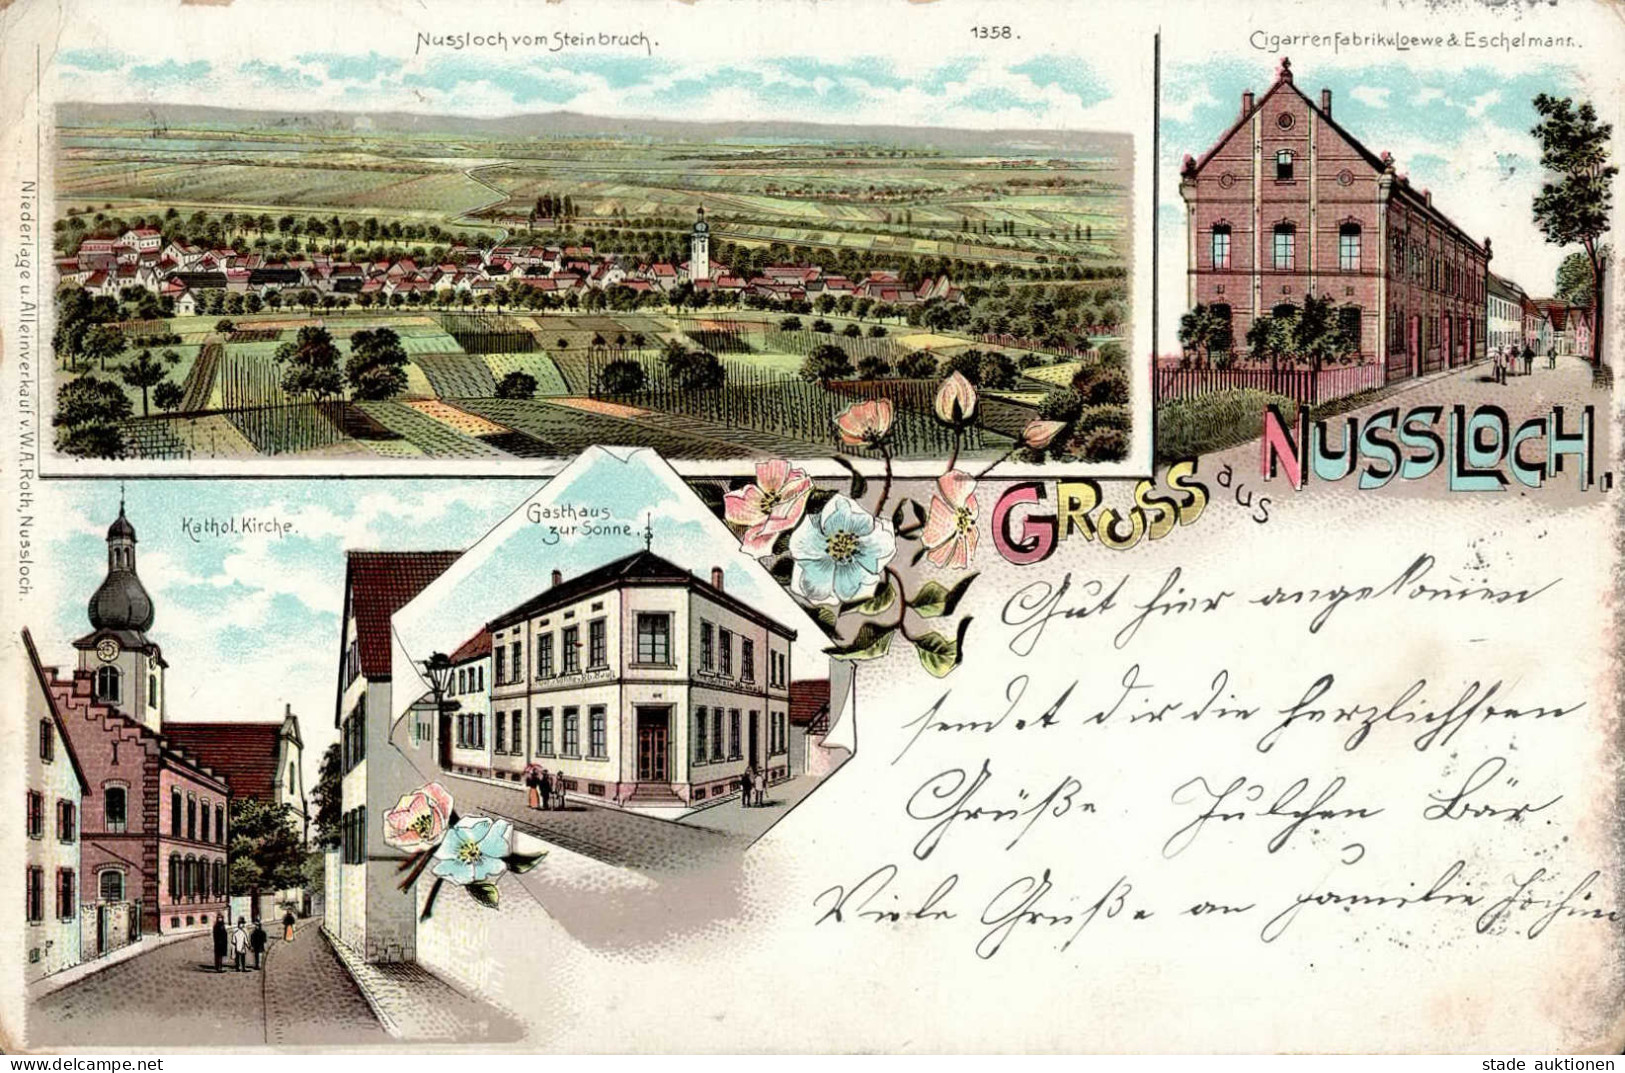 Nussloch vom Steinbruch.
1358.
Cigarrenfabrik v. Loewe & Eschelmann.
Niederlage u. Alleinverkauf v. W. A. Roth, Nussloch.
Kathol. Kirche.
Gasthaus
zur Sonne.
GRUSS aus NUSSLOCH.
Gut hier angekommen
sendet dir die herzlichsten
Grüße. Julchen Bär.
Viele Grüße an Familie
delcampe.net
stade auktionen